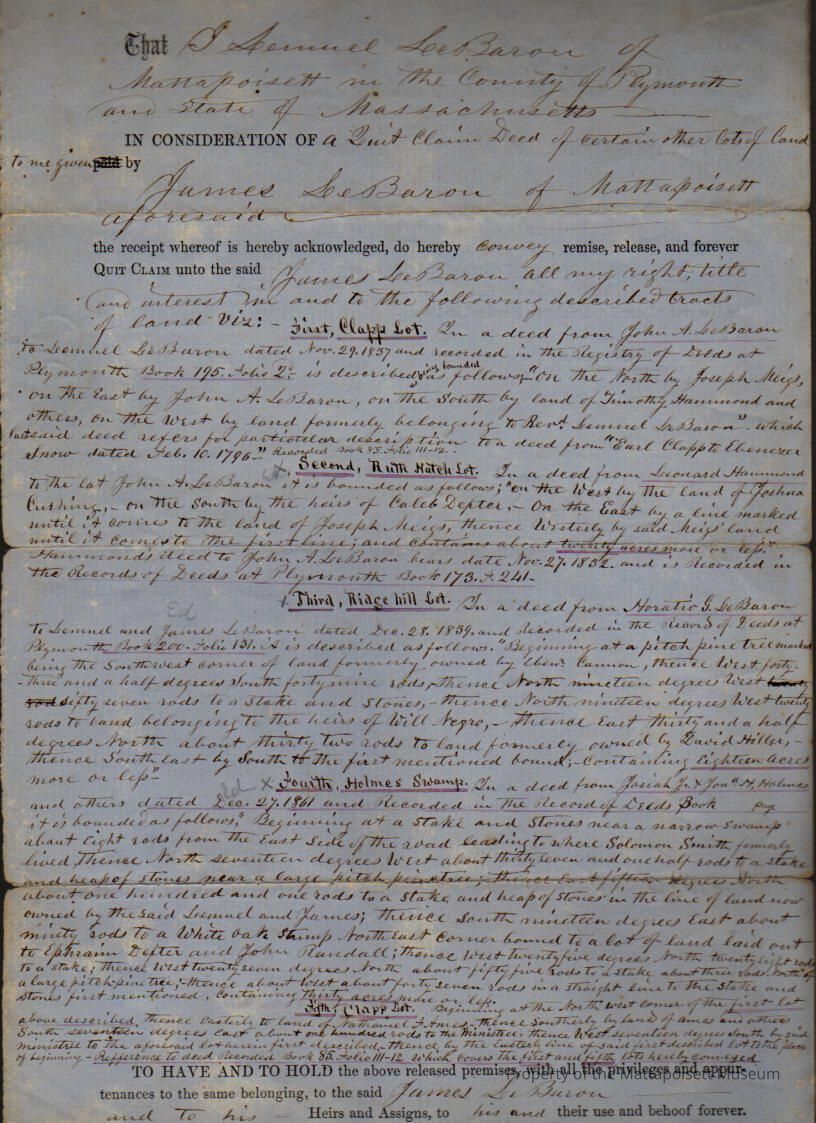 That I Lemuel LeBaron of
Mattapoisett in the County of Plymouth
and State of Massachusetts
IN CONSIDERATION OF a Quit Claim Deed of certain other lots of Land
to me given paid by
James LeBaron of Mattapoisett
aforesaid
the receipt whereof is hereby acknowledged, do hereby convey remise, release, and forever
QUIT CLAIM unto the said James LeBaron all my right, title
and interest in and to the following described tracts
of land viz: - First, Clapp Lot. In a deed from John A. LeBaron
to Lemuel LeBaron dated Nov. 29. 1837 and recorded in the Registry of Deeds at
Plymouth Book 195. Folio 2d. is described as being bounded as follows, "On the North by Joseph Meigs,
on the East by John A. LeBaron, on the South by land of Timothy Hammond and
others, on the West by land formerly belonging to Revd. Lemuel LeBaron" which
last said deed refers for particular description to a deed from "Earl Clapp to Ebenezer
Snow dated Feb. 10. 1796" Recorded Book 85. Folio 111-12.
x, Second, Ruth Hatch Lot. In a deed from Leonard Hammond
to the lat John A. LeBaron it is bounded as follows; "on the West by the land of Joshua
Cushing, - on the South by the heirs of Caleb Depter, - On the East by a line marked
until it comes to the land of Joseph Meigs, thence Westerly by said Meigs' land
until it comes to the first line; and contains about twenty acres more or less."
Hammond's deed to John A. LeBaron bears date Nov. 27. 1832. and is Recorded in
the Records of Deeds at Plymouth Book 173. F. 241-
Ed x Third, Ridge hill Lot. In a deed from Horatio G. LeBaron
to Lemuel and James LeBaron dated Dec. 28. 1839. and Recorded in the Record of Deeds at
Plymouth Book 200. Folio 131. it is described as follows. "Beginning at a pitch pine tree marked
being the Southwest corner of land formerly owned by Ebenr. Cannon, thence West forty-
-three and a half degrees South forty nine rods, - thence North nineteen degrees West twenty
rod fifty seven rods to a Stake and Stones, - thence North nineteen degrees West twenty
rods to land belonging to the heirs of Will Negro, - thence East thirty and a half
degrees North about thirty two rods to land formerly owned by David Hiller, -
thence South East by South to the first mentioned bound; - Containing Eighteen acres
more or less"
Ed x Fourth, Holmes Swamp. In a deed from Josiah Jr. & Jona. H. Holmes
and others dated Dec. 27. 1861 and Recorded in the Record of Deeds Book page
it is bounded as follows, "Beginning at a Stake and Stones near a narrow Swamp
about Eight rods from the East Side of the road leading to where Solomon Smith formerly
lived, thence North seventeen degrees West about thirty seven and one half rods to a stake
and heap of stones near a large pitch pine tree; thence East fifteen degrees North
about one hundred and one rods to a stake and heap of Stones in the line of land now
owned by the said Lemuel and James; thence South nineteen degrees East about
ninety rods to a White oak Stump North East corner bound to a lot of land laid out
to Ephraim Depter and John Randall; thence West twenty five degrees North twenty eight rods
to a stake; thence West twenty seven degrees North about fifty five rods to a stake about three rods North of
a large pitch pine tree; - thence about West about forty seven rods in a straight line to the Stake and
Stones first mentioned, Containing thirty acres more or less.
Fifth, Clapp Lot. Beginning at the North west corner of the first lot
above described, thence Easterly to land of Nathaniel F. Ames, thence Southerly by land of Ames and others
South seventeen degrees East about one hundred rods to the ministree; thence West seventeen degrees South by said
ministrel to the aforesaid lot herein first described - thence by the Easterly line of said first described lot to the place
of beginning - Refference to deed Recorded Book 85. Folio 111-12 Which covers the first and fifth lots hereby conveyed
TO HAVE AND TO HOLD the above released premises, with all the privileges and appur-
tenances to the same belonging, to the said James LeBaron
and to his Heirs and Assigns, to his and their use and behoof forever.
Property of the Mattapoisett Museum